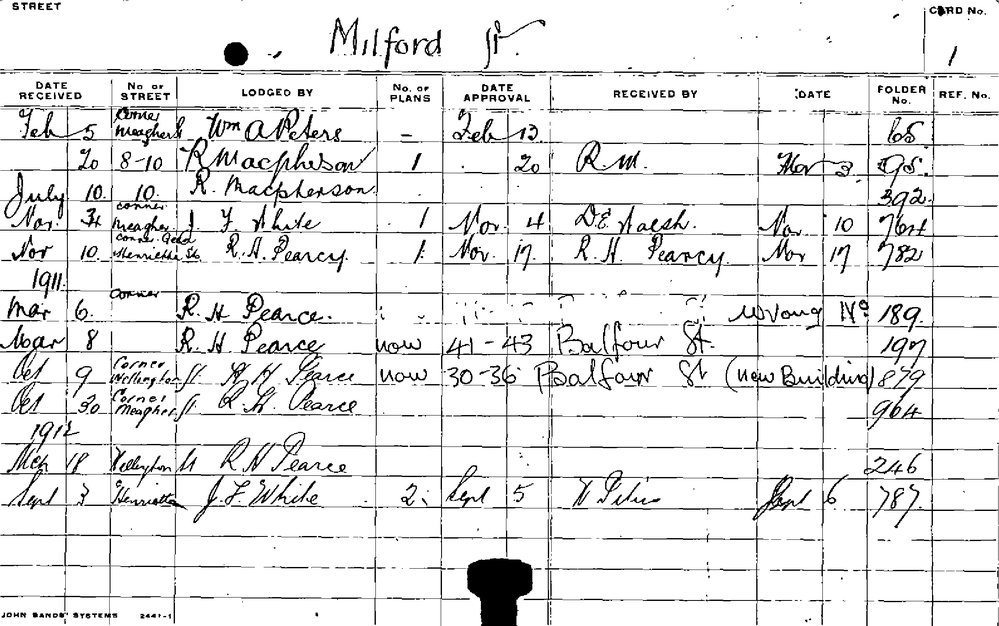 STREET
CARD No.
Milford St.
1
DATE RECEIVED No OF STREET LODGED BY No. OF PLANS DATE APPROVAL RECEIVED BY DATE FOLDER No. REF. No.
corner
Feb 5 Meagher St Wm A Peters – Feb 13 65
20 8-10 R Macpherson 1 20 R M. Mar 3 98.
July 10 10. R. Macpherson 392
corner
Nov. Meagher J. F. White 1 Nov. 4 D E Walsh. Nov 10
corner
Nov 10. Henrietta St. R. H. Pearcy 1. Nov. 17. R. H. Pearcy Nov 17 782
1911.
corner
Mar 6. R. H Pearce. Wrong No 189.
Mar 8 R. H Pearce now 41-43 Balfour St. 197
Corner
Oct 9 Wellington St H Pearce now 30-36 Balfour St (New Building) 879
Corner
Oct 30 Meagher St R. H. Pearce 964
1912
Mch 18 Wellington St R H Pearce 246
Sept 3 Henrietta J. F. White 2. Sept 5 Sept 6 787.
JOHN SANDS' SYSTEMS 2441-1